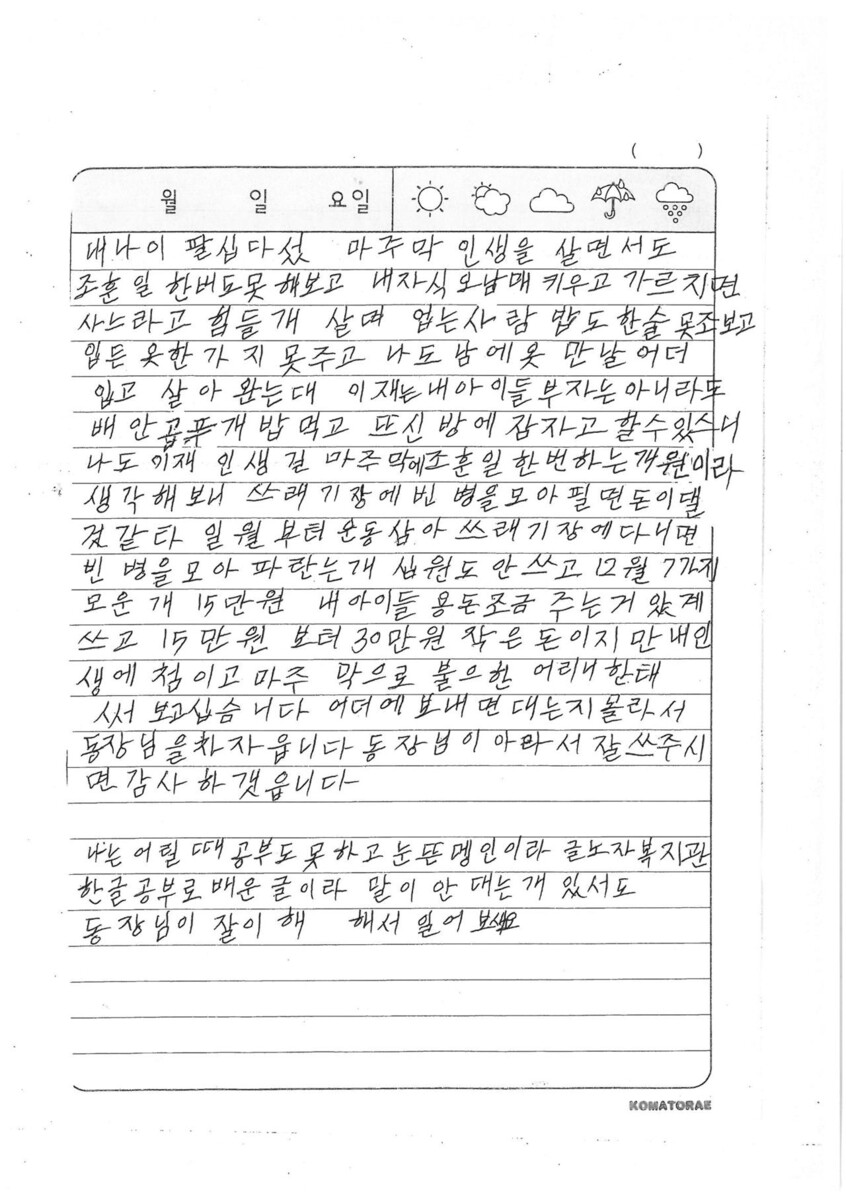 ( )
월 일 요일
내나이 팔십다섯 마주막 인생을 살면서도
조훈일 한버도못 해보고 내자식 오남매 키우고 가르치면
사느라고 힘들개 살며 업는사람 밥도한술 못조보고
입든 옷한가지 못주고 나도 남에옷 만날 어더
입고 살아 왔는대 이재는내아이들 부자는아니라도
배 안곱푸개 밥먹고 뜨신 방에 잠자고 할수있스니
나도 이재 인생길 마주막에조훈일 한번하는개 원이라
생각해보니 쓰래기장에 빈 병을모아 필면돈이댈
것같타 일월부터 운동삼아 쓰래기장에다니면
빈 병을모아 파란는개 십원도 안쓰고 12월 7가지
모운개 15만원 내아이들 용돈조금 주는거 았계
쓰고 15만원 보터 30만원 작은 돈이지만 내인
생에 첨이고 마주 막으로 불으한 어리니한태
써 보고십슴니다 어더에 보내면 대는지몰라서
동장님을차자읍니다 동장님이 아라서 잘쓰주시
면감사하갯읍니다
나는 어릴 때 공부도못하고 눈뜬멩인이라 글노자복지관
한글공부로 배운글이라 말이 안 대는개 있서도
동장님이 잘이해 해서 일어 보새요
KOMATORAE